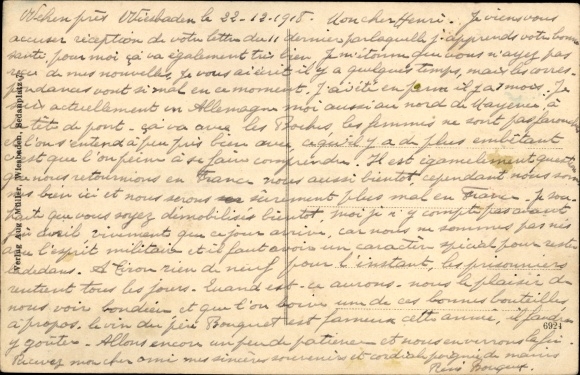 Wehen près Wiesbaden le 22-12-1918. Mon cher Henri. Je viens vous
accuser réception de votre lettre du 11 dernier par laquelle j'apprends votre bonne
santé, pour moi ça va également très bien. Je m'étonne que vous n'ayez pas
reçu de mes nouvelles, je vous ai écrit il y a quelques temps, mais les corres-
pondances vont si mal en ce moment. J'ai été en perm il y a 1 mois. Je
suis actuellement en Allemagne moi aussi au nord de Mayence, à
la tête de pont. ça va avec les Boches, les femmes ne sont pas farouches
et l'on s'entend à peu près bien avec ce qu'il y a de plus embêtant
c'est que l'on peine à se faire comprendre. Il est également question
que nous retournions en France nous aussi bientôt, cependant nous som-
mes bien ici et nous serons sûrement plus mal en France. Je sou-
haite que vous soyez démobilisés bientôt, moi je n'y compte pas avant
vivement que ce jour arrive, car nous ne sommes pas nés
avec l'esprit militaire et il faut avoir un caractère spécial pour rester
là dedans. A rien de neuf pour l'instant, les prisonniers
rentrent tous les jours. Quand est-ce aurons-nous le plaisir de
nous voir et que l'on boive une de ces bonnes bouteilles
à propos. le vin du père Bouquet est fameux cette année, il faudra
y goûter. Allons encore un peu de patience et nous en verrons la fin.
Recevez mon cher ami mes sincères souvenirs et cordiale poignée de mains
René
Verlag Aug. Müller, Wiesbaden, Sedanplatz 7.
6924